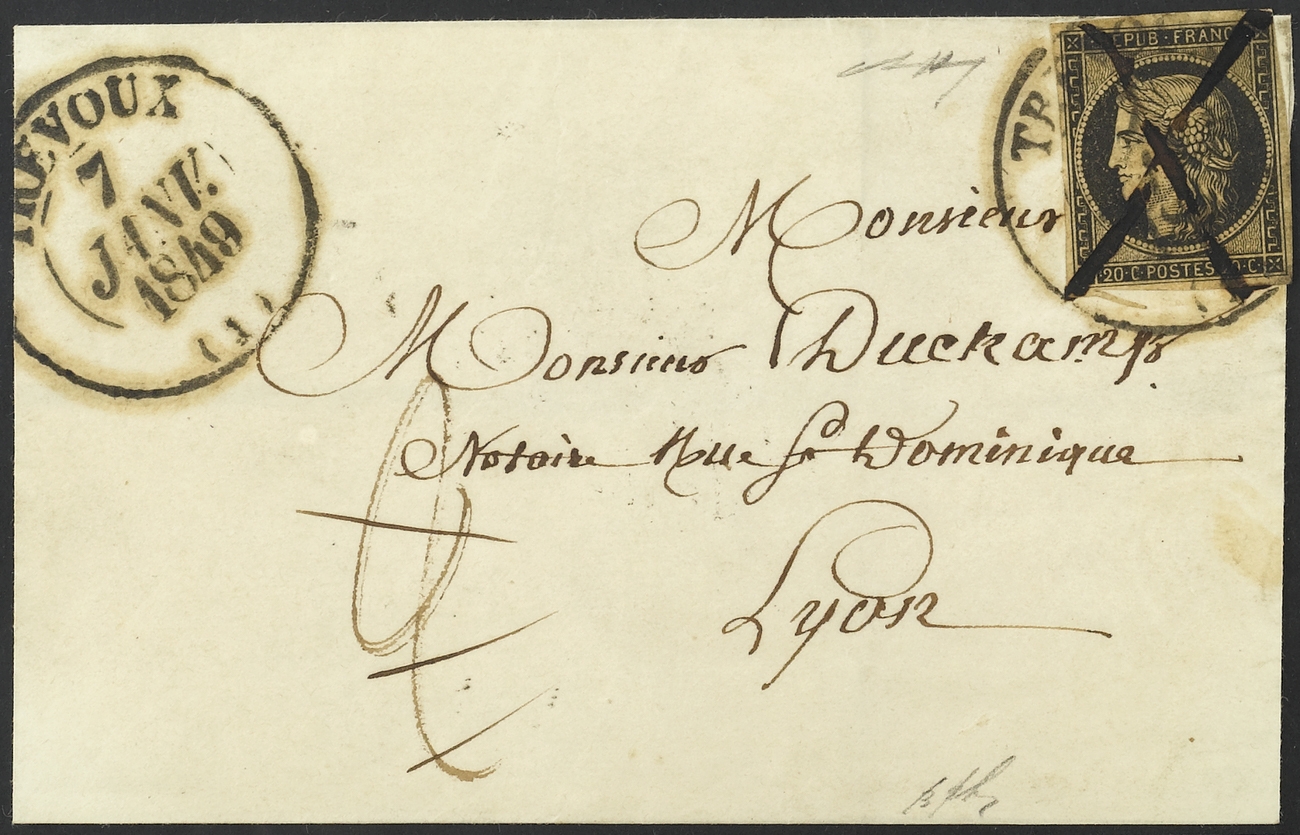 TREVOUX
7
JANV.
1849
(1)
REPUB·FRANC
20·C·POSTES·20·C·
TR
Monsieur
Monsieur Duchamp
Notaire Rue St Dominique
Lyon